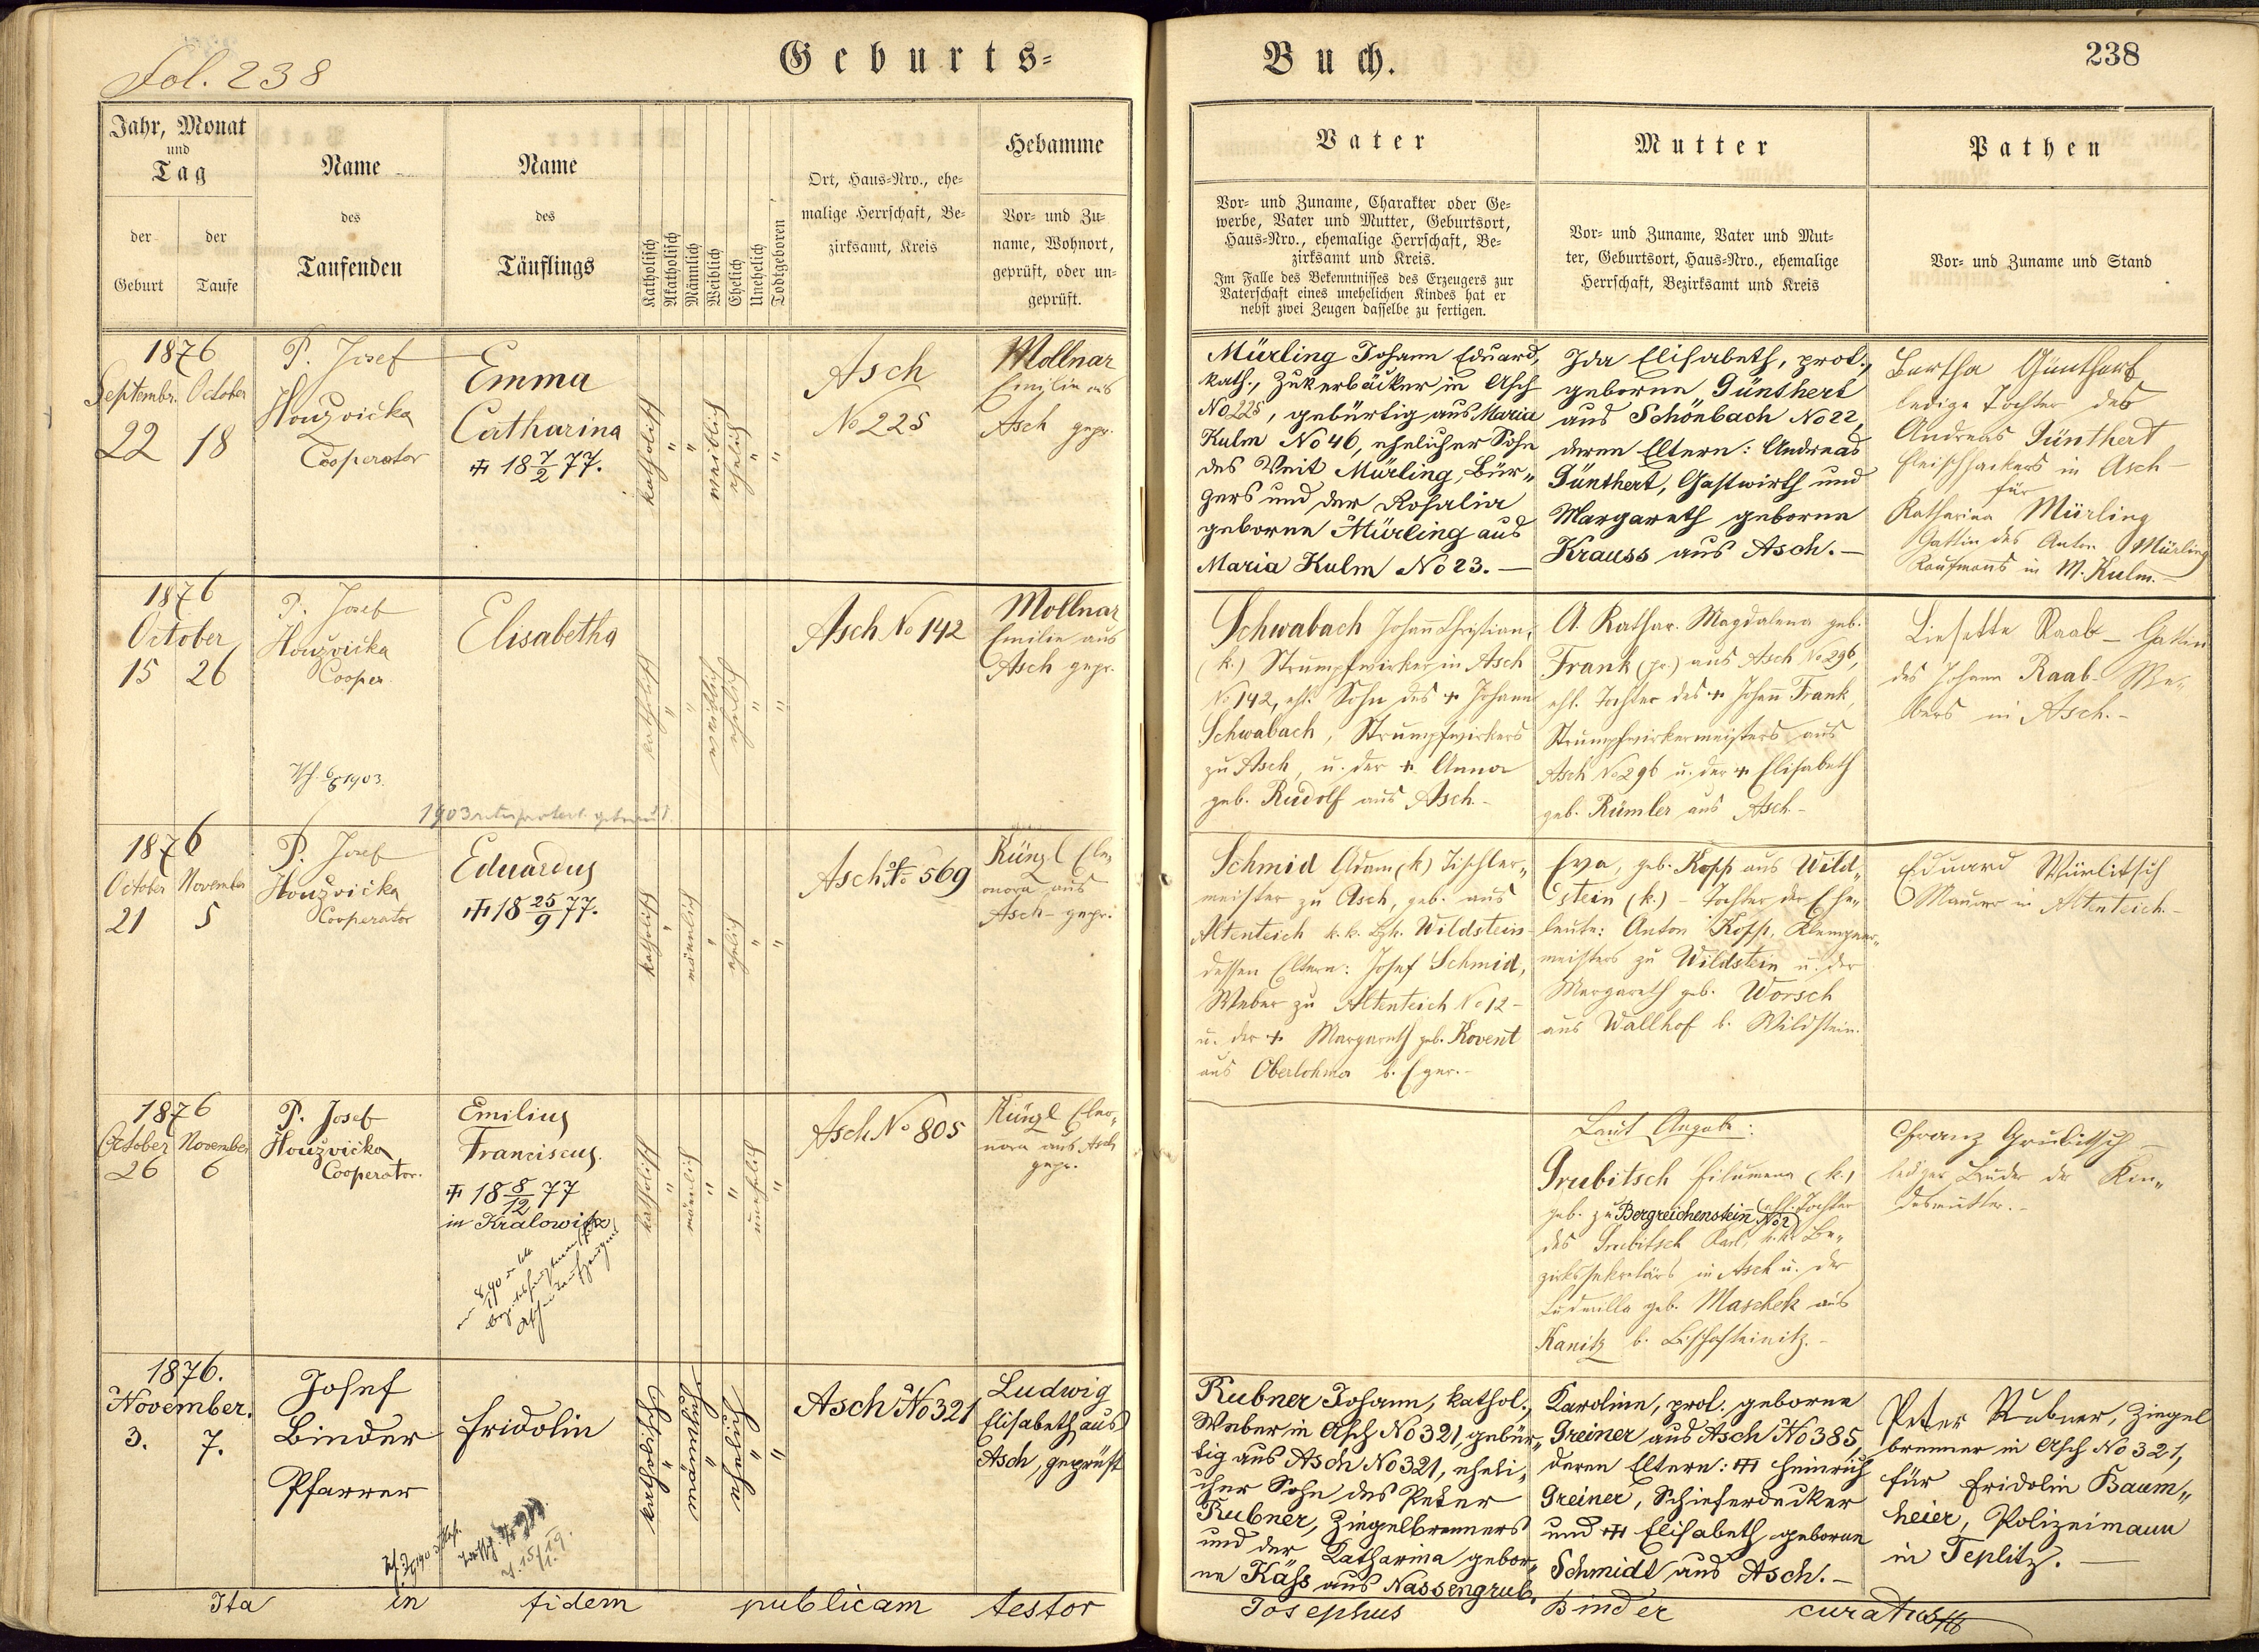 Fol. 238
Geburts-
Buch.
238
Jahr, Monat
und
Tag
der Geburt
der Taufe
Name
des
Taufenden
Name
des
Täuflings
Katholisch
Akatholisch
Männlich
Weiblich
Ehelich
Unehelich
Todtgeboren
Ort, Haus-Nro., ehe-
malige Herrschaft, Be-
zirksamt, Kreis
Hebamme
Vor- und Zu-
name, Wohnort,
geprüft, oder un-
geprüft.
Vater
Vor- und Zuname, Charakter oder Ge-
werbe, Vater und Mutter, Geburtsort,
Haus-Nro., ehemalige Herrschaft, Be-
zirksamt und Kreis.
Im Falle des Bekenntnisses des Erzeugers zur
Vaterschaft eines unehelichen Kindes hat er
nebst zwei Zeugen dasselbe zu fertigen.
Mutter
Vor- und Zuname, Vater und Mut-
ter, Geburtsort, Haus-Nro., ehemalige
Herrschaft, Bezirksamt und Kreis
Pathen
Vor- und Zuname und Stand
1876
Septembr. October
22 18
P. Josef
Houzvička
Cooperator
Emma
Catharina
18 7/2 77.
katholisch
"
"
weiblich
ehelich
"
"
Asch
No 225
Mollnar
Emilie aus
Asch gepr.
Mürling Johann Eduard,
kath., Zukerbäcker in Asch
No 225, gebürtig aus Maria
Kulm No 46, ehelicher Sohn
des Veit Mürling, Bür„
gers und der Rosalia
geborne Mürling aus
Maria Kulm No 23. —
Ida Elisabeth, prot.,
geborne Günthert
aus Schönbach No 22,
deren Eltern: Andreas
Günthert, Gastwirth und
Margareth geborne
Krauss aus Asch. —
Bertha Günthert
ledige Tochter des
Andreas Günthert
Fleischhackers in Asch —
für
Katharina Mürling
Gattin des Anton Mürling
Kaufmanns in M. Kulm. —
1876
October
15 26
P. Josef
Houzvička
Cooper.
1903
Elisabetha
1903
katholisch
"
"
weiblich
ehelich
"
"
Asch No 142
Mollnar
Emilie aus
Asch gepr.
Schwabach Johann Christian,
(k.) Strumpfwirker in Asch
No 142, ehl. Sohn des + Johann
Schwabach, Strumpfwirkers
zu Asch, u. der + Anna
geb. Rudolf aus Asch. -
A. Kathar. Magdalena geb.
Frank (pr.) aus Asch No 296,
ehl. Tochter des + Johann Frank,
Strumpfwirkermeisters aus
Asch No 296 u. der + Elisabeth
geb. Rümler aus Asch -
Liesette Raab - Gattin
des Johann Raab - We„
bers in Asch. -
1876
October November
21 5
P. Josef
Houzvička
Cooperator
Eduardus
18 25/9 77.
katholisch
"
männlich
"
ehelich
"
"
Asch No 569
Künzl Ele„
onora aus
Asch - gepr.
Schmid Adam (k) Tischler„
meister zu Asch, geb. aus
Altenteich k. k. Bzh. Wildstein -
dessen Eltern: Josef Schmid,
Weber zu Altenteich No 12 -
u. der + Margareth geb. Kovent
aus Oberlohma b. Eger. -
Eva, geb. Kopp aus Wild„
stein (k.) - Tochter der Ehe„
leute: Anton Kopp, Klempner„
meisters zu Wildstein u. der
Margareth geb. Worsch
aus Wallhof b. Wildstein.
Eduard Würlitsch
Maurer in Altenteich. -
1876
October November
26 6
P. Josef
Houzvička
Cooperator.
Emilius
Franciscus.
18 8/12 77
in Kralowitz
katholisch
"
männlich
"
"
unehelich
"
Asch No 805
Künzl Eleo„
nora aus Asch
gepr.
Laut Angabe:
Grubitsch Filumena (k.)
geb. zu Bergreichenstein No 2, ehl. Tochter
des Grubitsch Karl, k. k. Be„
zirkssekretärs in Asch u. der
Ludmilla geb. Maschek aus
Kanitz b. Bischofteinitz. -
Franz Grubitsch -
lediger Bruder der Kin„
desmutter. -
1876.
November.
3. 7.
Josef
Binder
Pfarrer
Fridolin
katholisch
"
männlich
"
ehelich
"
"
Asch No 321
Ludwig
Elisabeth aus
Asch, geprüft
Rubner Johann, kathol.,
Weber in Asch No 321, gebür„
tig aus Asch No 321, eheli„
cher Sohn des Peter
Rubner, Ziegelbrenners
und der Katharina gebor„
ne Käß aus Nassengrub.
Karoline, prot. geborne
Greiner aus Asch No 385,
deren Eltern: Heinrich
Greiner, Schieferdecker
und Elisabeth geborne
Schmidt aus Asch. —
Peter Rubner, Ziegel
brenner in Asch No 321,
für Fridolin Baum„
heier, Polizeimann
in Teplitz. —
Ita in fidem publicam testor
Josephus Binder curatus